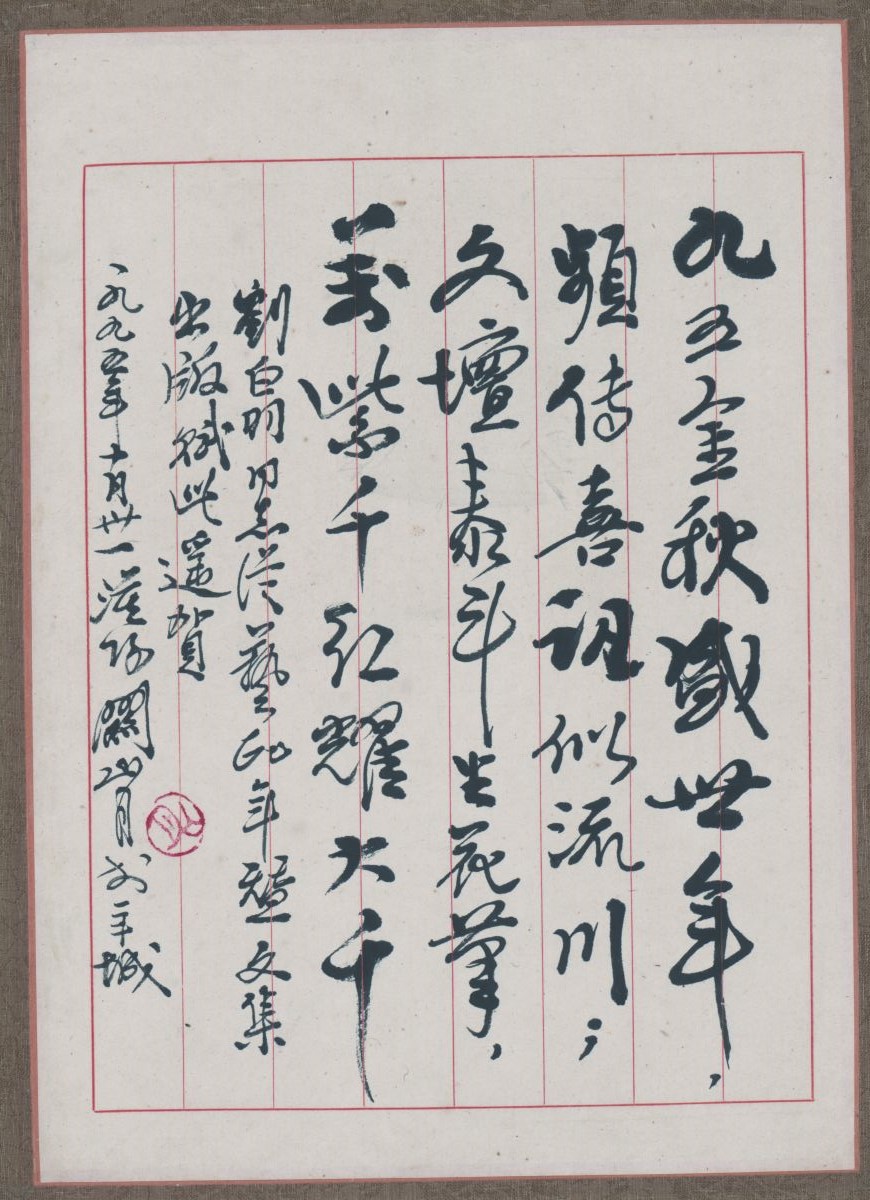 九五金秋盛世年，
頻传喜讯似流川；
文壇泰斗生花筆，
萬紫千红耀大千
劉白羽同志从藝六十年暨文集
出版赋此遥贺
一九九五年十月卅一 關山月於羊城